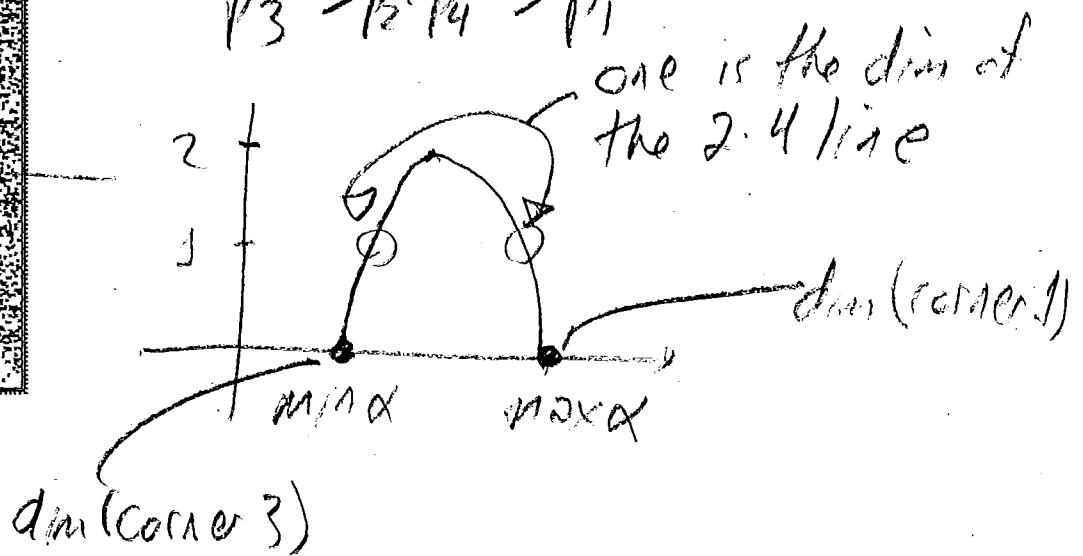 P3 P2 P4 P1
one is the dim of
the 2·4 line
2
1
dim(corner 1)
min α
max α
dim(corner 3)